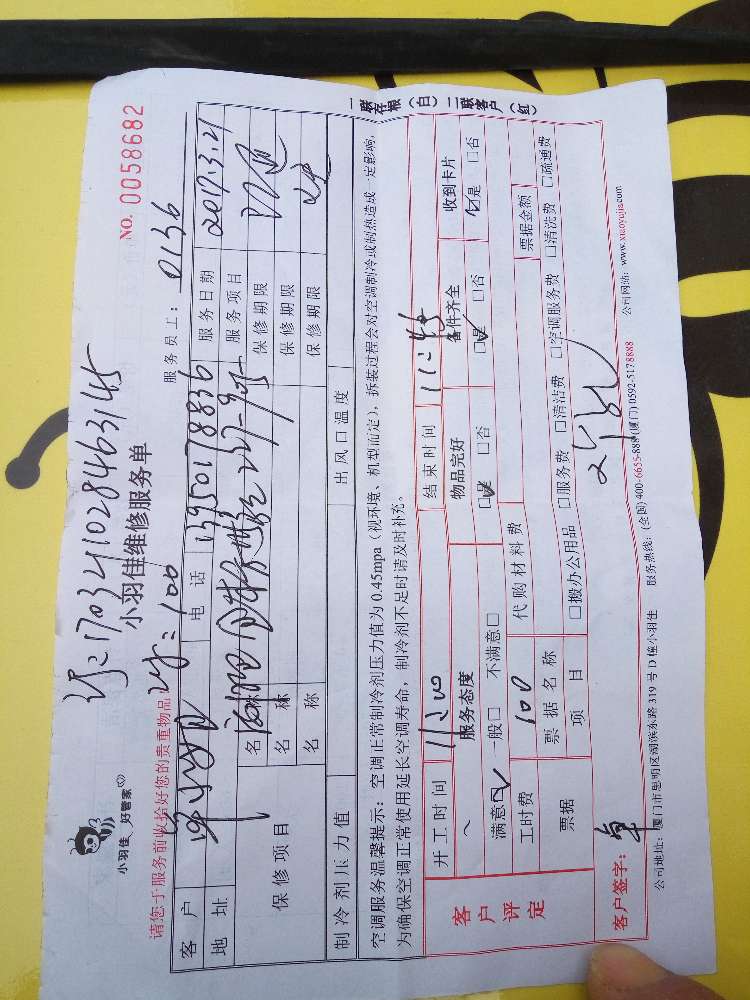 170341028463145
小羽佳 好管家
小羽佳维修服务单
NO. 0058682
请您于服务前收拾好您的贵重物品
=100
服务员工: 0136
客户 电话 13950178836 服务日期 2017.3.21
地址 服务项目
保修项目 名称 保修期限
名称 保修期限
名称 保修期限
制冷剂压力值 出风口温度
空调服务温馨提示:空调正常制冷剂压力值为0.45mpa(视环境、机型而定),拆装过程会对空调制冷或制热造成一定影响,
为确保空调正常使用延长空调寿命,制冷剂不足时请及时补充。
一联存根(白)二联客户(红)
客户评定
开工时间 11:00 结束时间 11:45
服务态度 物品完好 备件齐全 收到卡片
满意☑ 一般□ 不满意□ ☑是 □否 ☑是 □否 ☑是 □否
工时费 100 代购材料费
票据 票据名称 票据金额
项目 □搬办公用品 □服务费 □清洁费 □空调服务费 □清洗费 □疏通费
客户签字:
公司地址:厦门市思明区湖滨东路319号D幢小羽佳 服务热线:(全国)400-6655-888(厦门)0592-5178888 公司网站:www.xiaoyujia.com